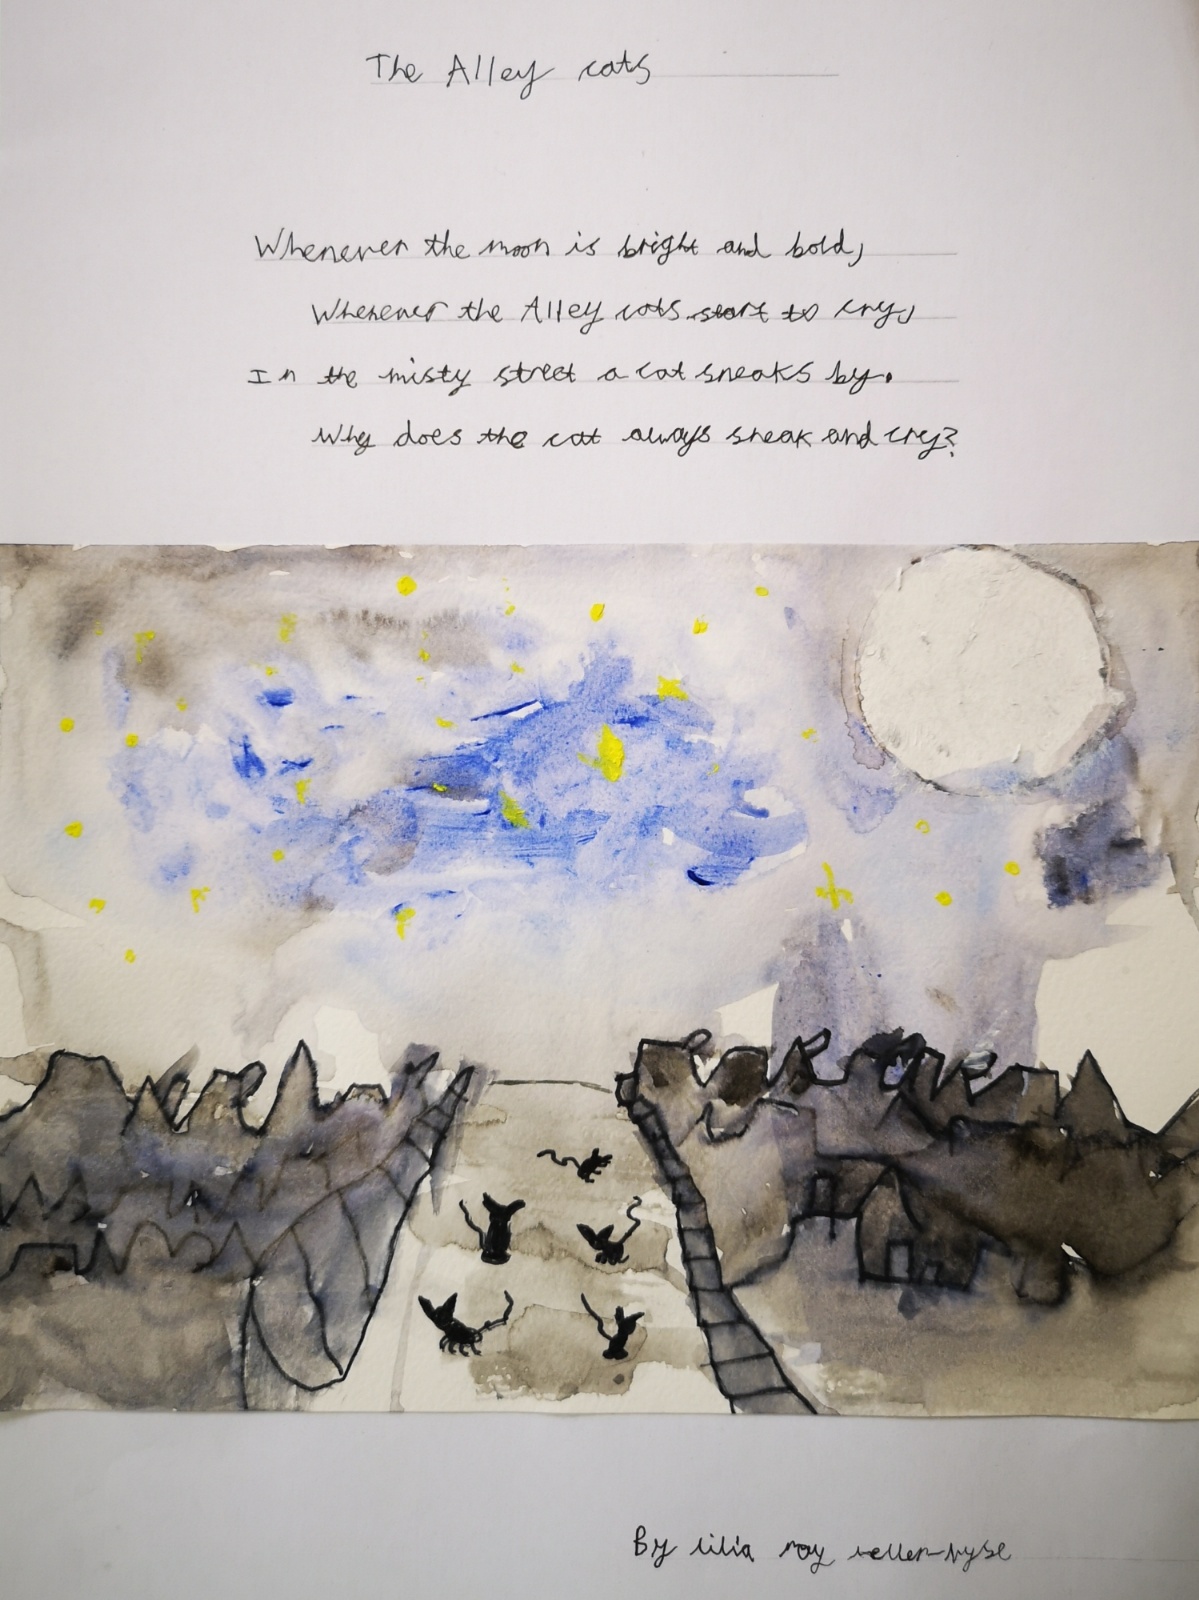 The Alley cats
Whenever the moon is bright and bold,
Whenever the Alley cats start to cry,
In the misty street a cat sneaks by.
Why does the cat always sneak and cry?
By lilia